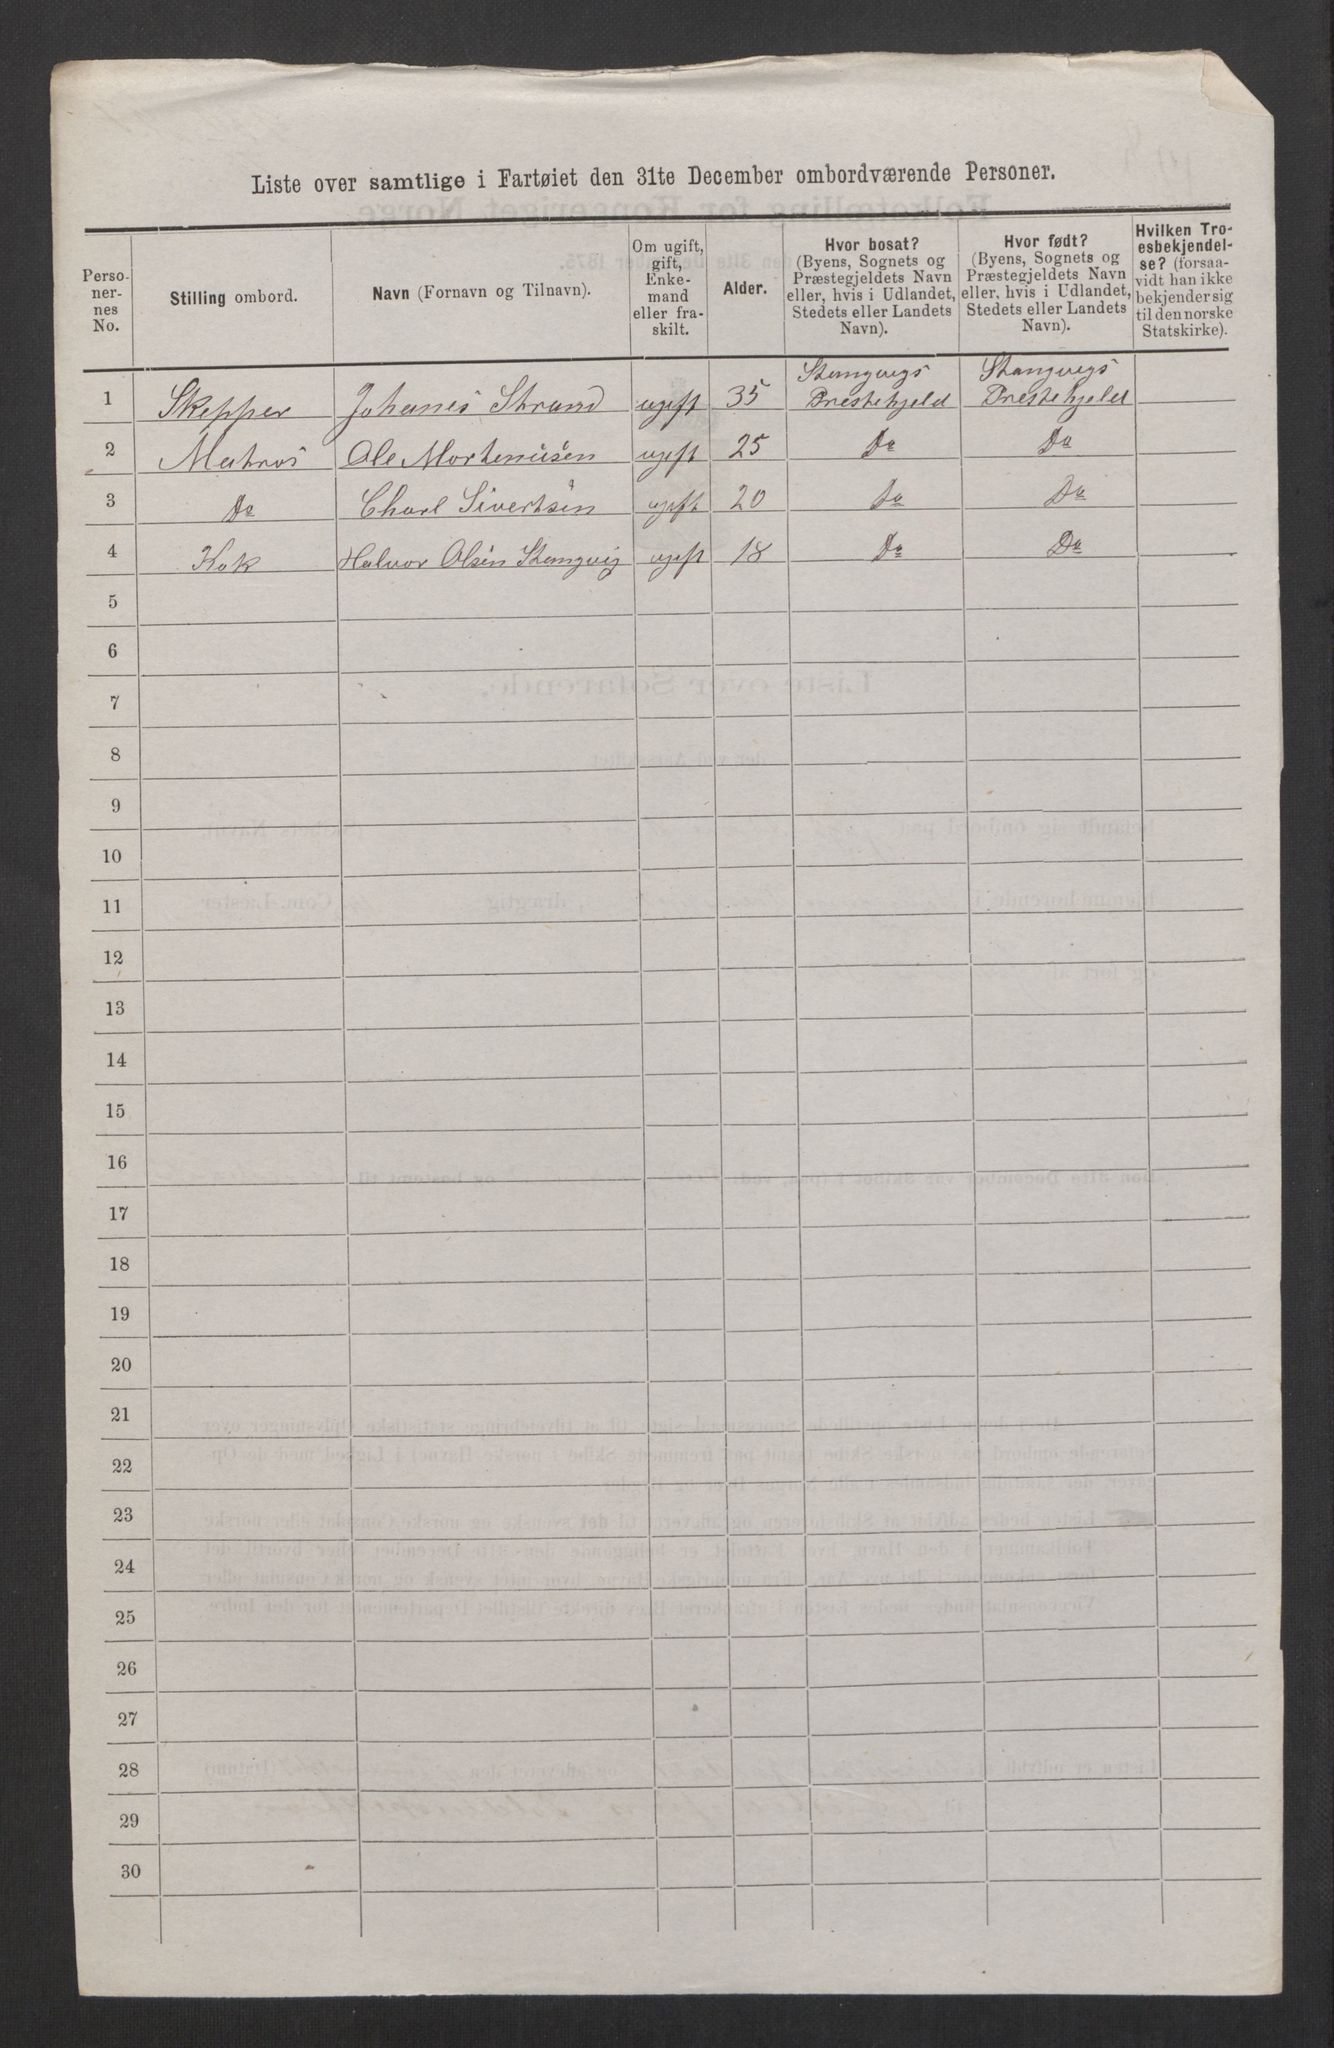 Liste over samtlige i Fartøiet den 31te December ombordværende Personer.
Perso-
ner-
nes
No.
Stilling ombord.
Navn (Fornavn og Tilnavn).
Om ugift,
gift,
Enke-
mand
eller fra-
skilt.
Alder.
Hvor bosat?
(Byens, Sognets og
Præstegjeldets Navn
eller, hvis i Udlandet,
Stedets eller Landets
Navn).
Hvor født?
(Byens, Sognets og
Præstegjeldets Navn
eller, hvis i Udlandet,
Stedets eller Landets
Navn).
Hvilken Tro-
esbekjendel-
se? (forsaa-
vidt han ikke
bekjender sig
til den norske
Statskirke).
Stangvigs Stangvigs
1 Skepper Johanes Strand ugift 35 Prestehjeld Prestehjeld
2 Matros Ole Mortenusen ugift 25 Do Do
3 Do Charl Sivertsen ugift 20 Do Do
4 Kok Halvor Olsen Stangvig ugift 18 Do Do
5
6
7
8
9
10
11
12
13
14
15
16
17
18
19
20
21
22
23
24
25
26
27
28
29
30